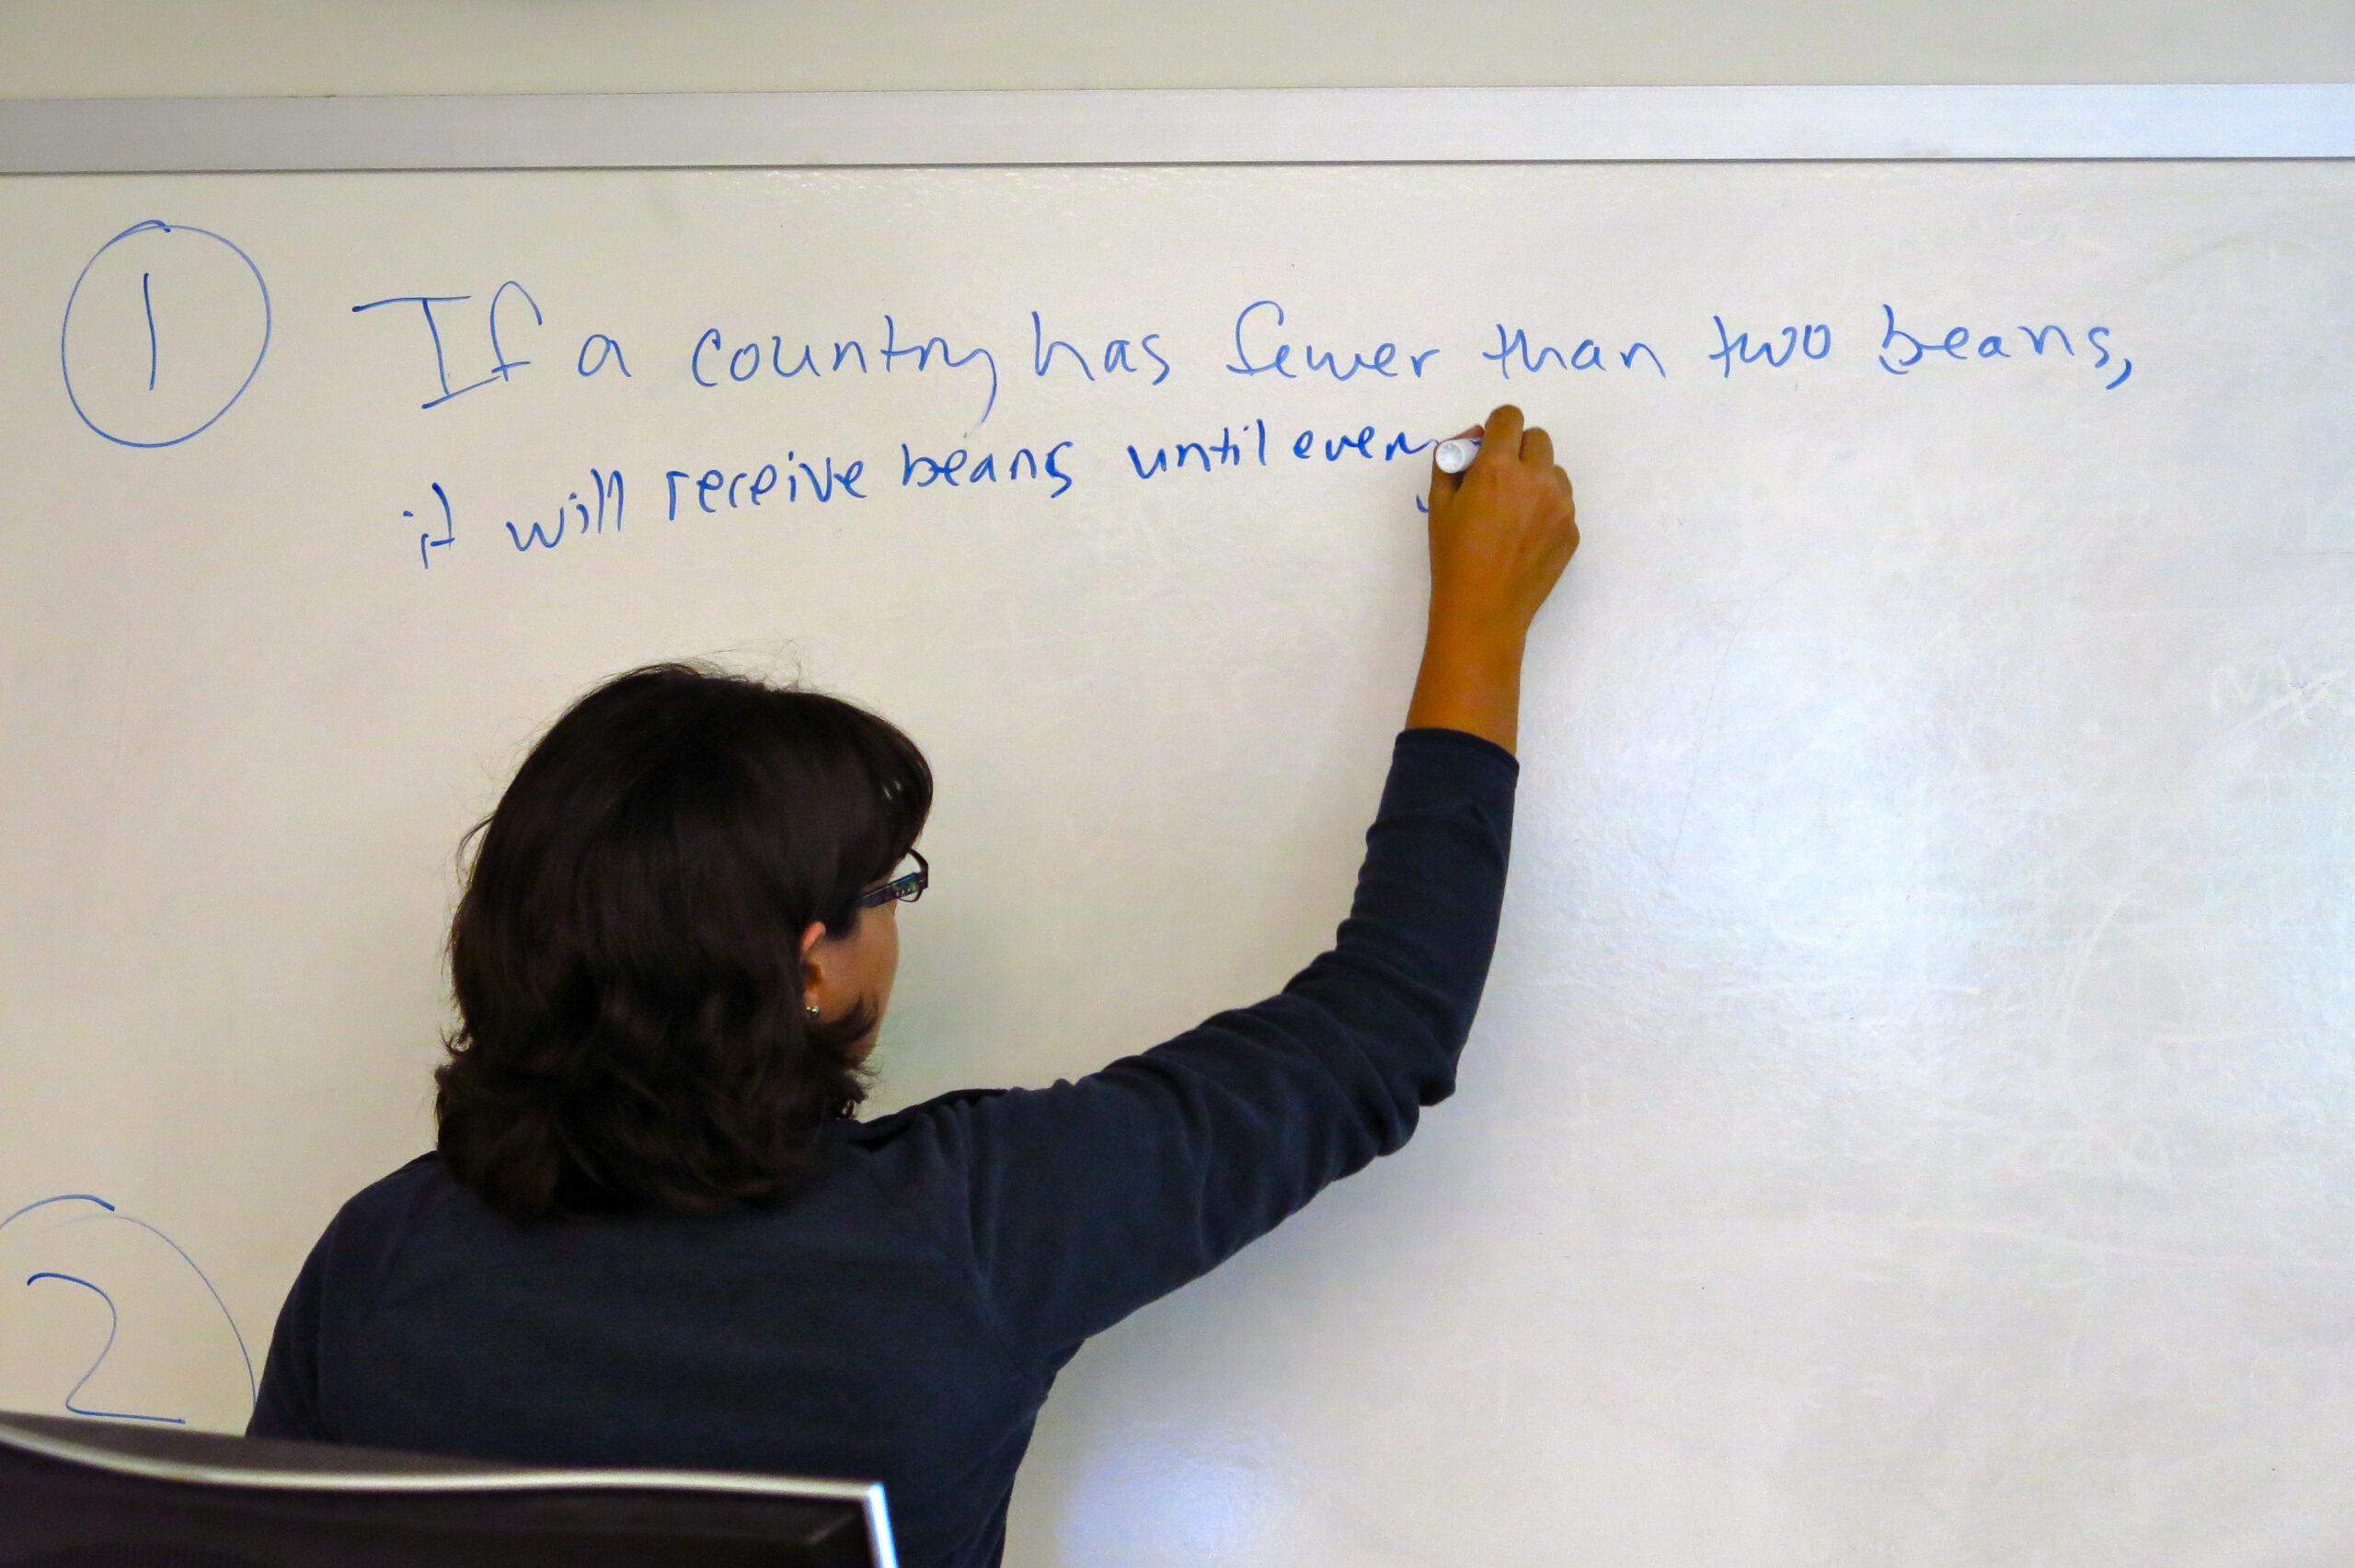 1 If a country has fewer than two beans,
it will receive beans until every
2